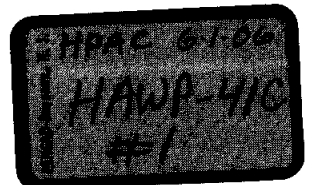 HPAC 6-1-06
HAWP-41C
#1